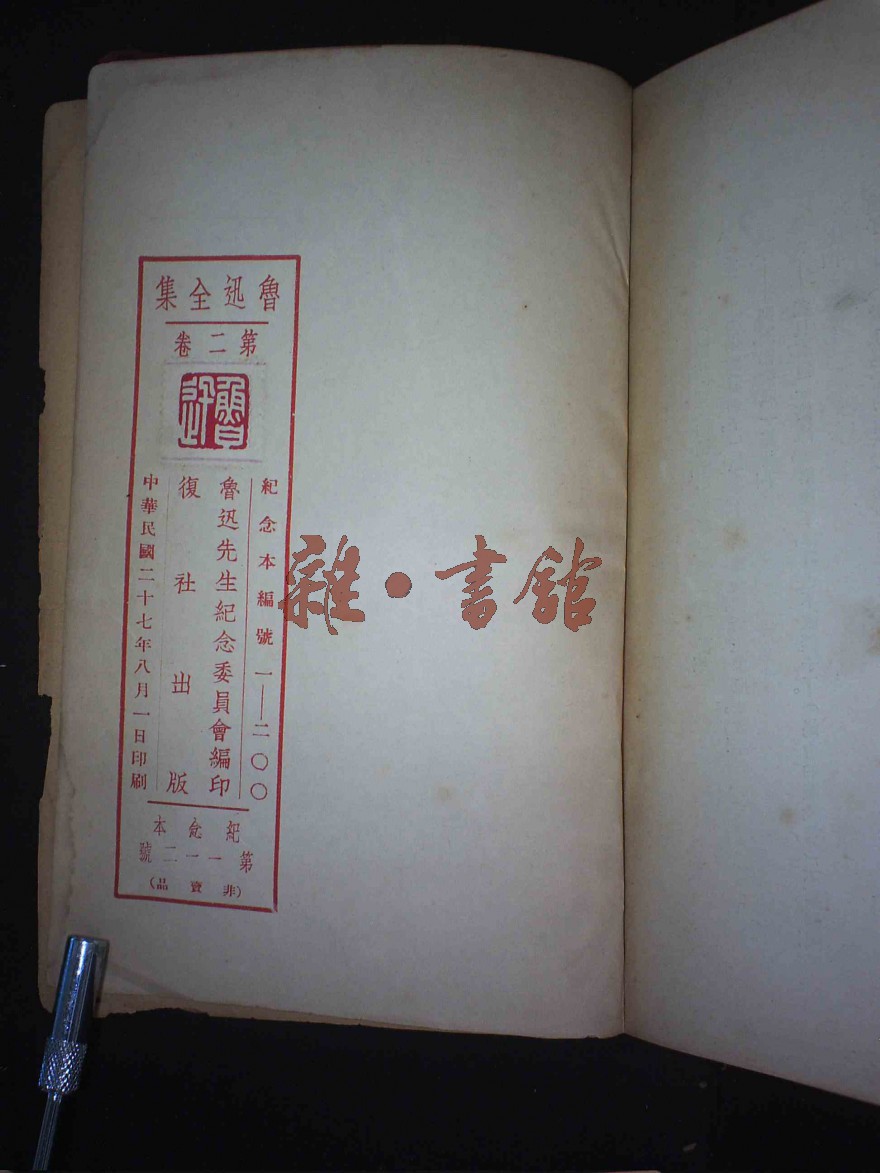 魯迅全集
第二卷
魯迅
紀念本編號一—二〇〇
魯迅先生紀念委員會編印
復社出版
中華民國二十七年八月一日印刷
紀念本
第一一二號
(非賣品)
雜·書館